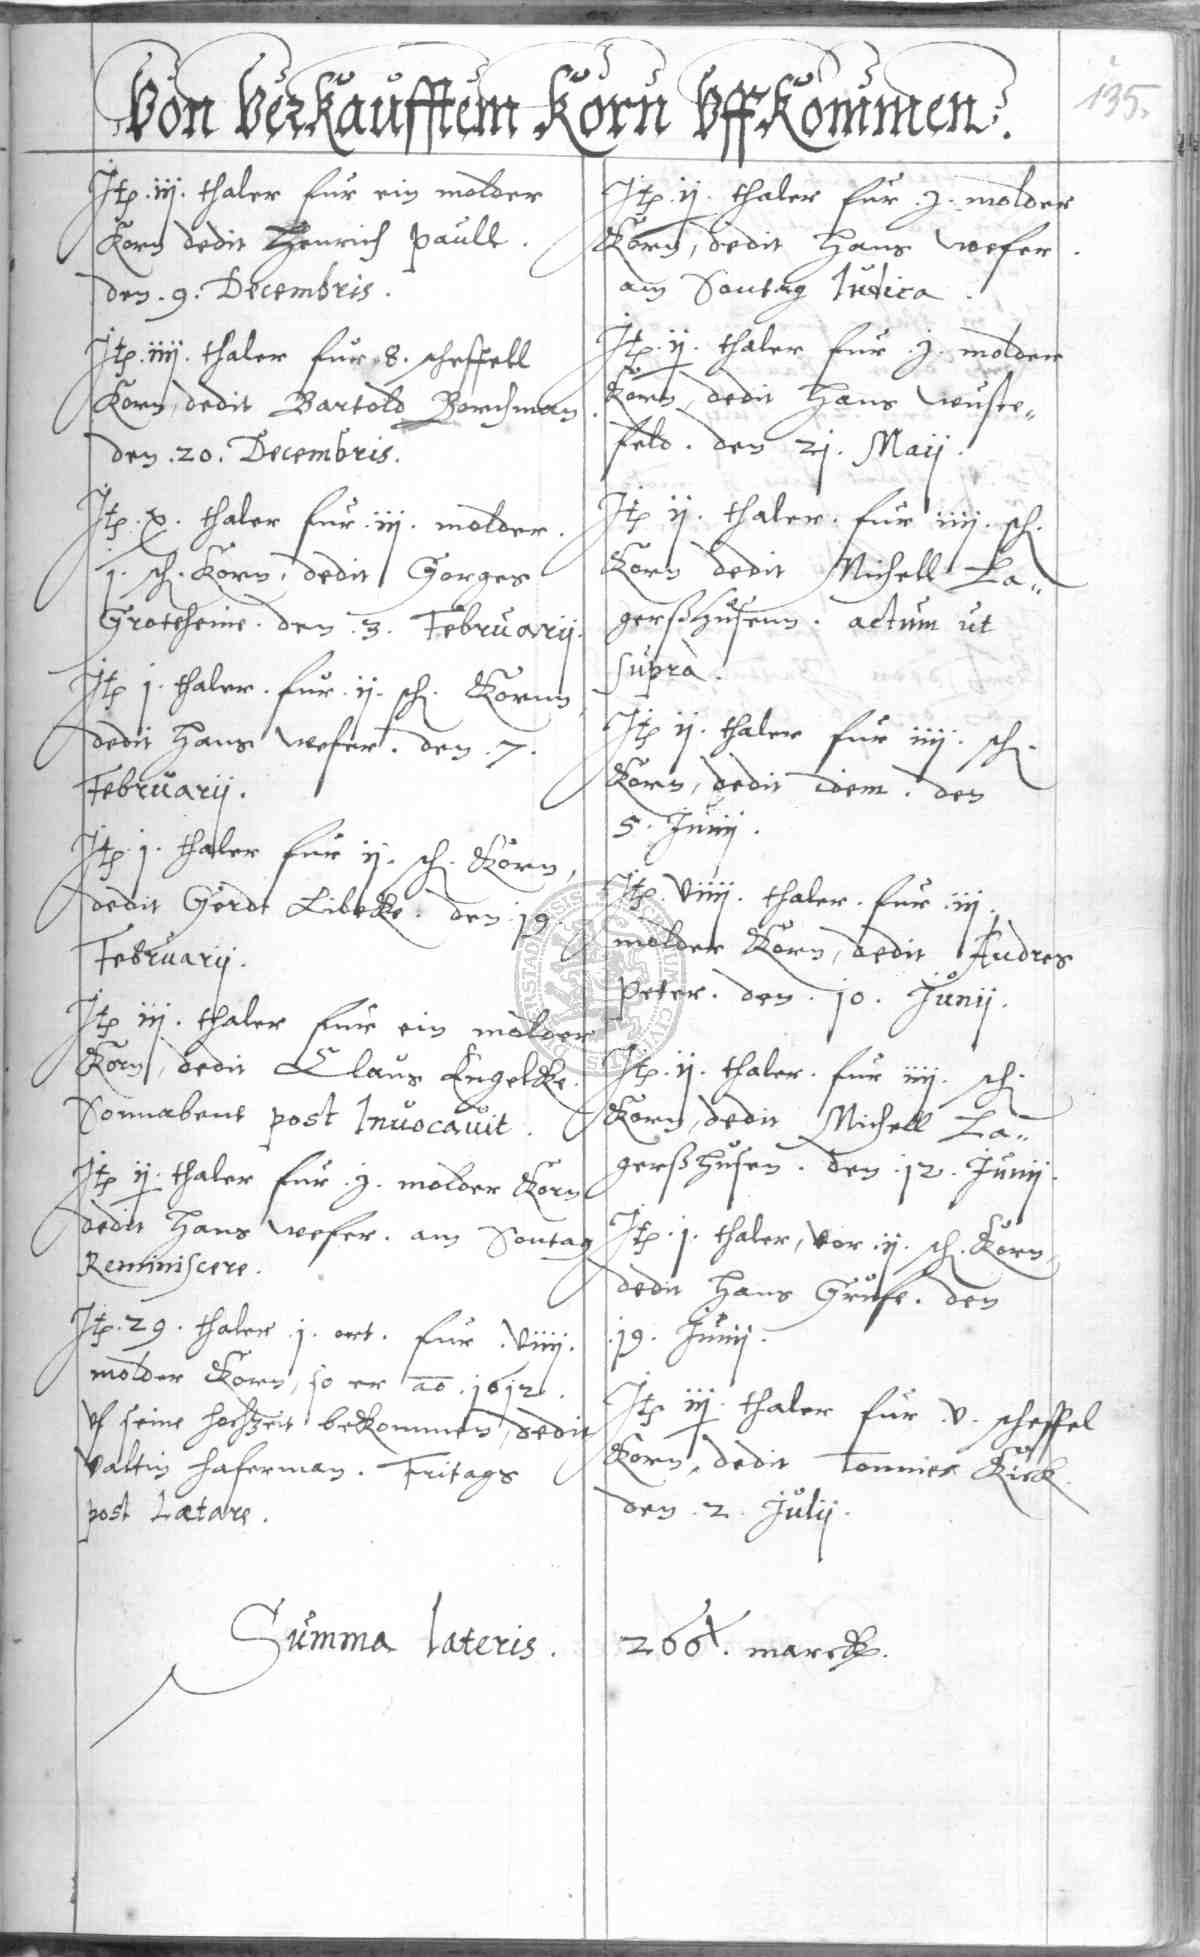 Von Verkaufftem Korn Uffkommen.
135.
Itp. iij. thaler fur ein molder
Korn dedit Henrich Paull.
den. 9. Decembris.
Itp. iiij. thaler fur 8. scheffell
Korn, dedit Bartold Borchman
den. 20. Decembris.
Itp. x. thaler fur iij. molder.
j. sch. Korn, dedit Gorges
Groteheine. den. 3. Februarij.
Itp j. thaler. fur. ij. sch. Kornn,
dedit Hans Wefer. den. 7.
Februarij.
Itp. j. thaler fur ij. sch. Korn,
dedit Gerdt Libeke. den. 19.
Februarij.
Itp iij. thaler fur ein molder
Korn, dedit Claus Engelke.
Sonnabent post Invocavit.
Itp ij. thaler fur. j. molder Korn
dedit Hans Wefer. am Sontag
Reminiscere.
Itp. 29. thaler j. ort. fur. viiij.
molder Korn, so er ao. 1612.
uf seine hochzeit bekommen, dedit
Valtin Haferman. Fritags
post Lætare.
Itp. ij. thaler fur. j. molder
Korn, dedit Hans Wefer.
am Sontag Iudica.
Itp. ij. thaler fur. j. molder
Korn, dedit Hans Wuste„
feld. den 21. Maij.
Itp ij. thaler. fur iiij. sch.
Korn dedit Michell La„
gerßhusenn. actum ut
supra.
Itp ij. thaler fur iiij. sch.
Korn, dedit idem. den
5. Junij.
Itp. viiij. thaler. fur. iij.
molder Korn, dedit Andres
Peter. den. 10. Junij.
Itp. ij. thaler. fur iiij. sch.
Korn, dedit Michell La„
gerßhusen. den. 12. Junij.
Itp. j. thaler, vor. ij. sch. Korn,
dedit Hans Grufe. den
19. Junij.
Itp iij. thaler fur. v. scheffel
Korn, dedit Tonnies Kick.
den. 2. Julij.
Summa lateris. marck.